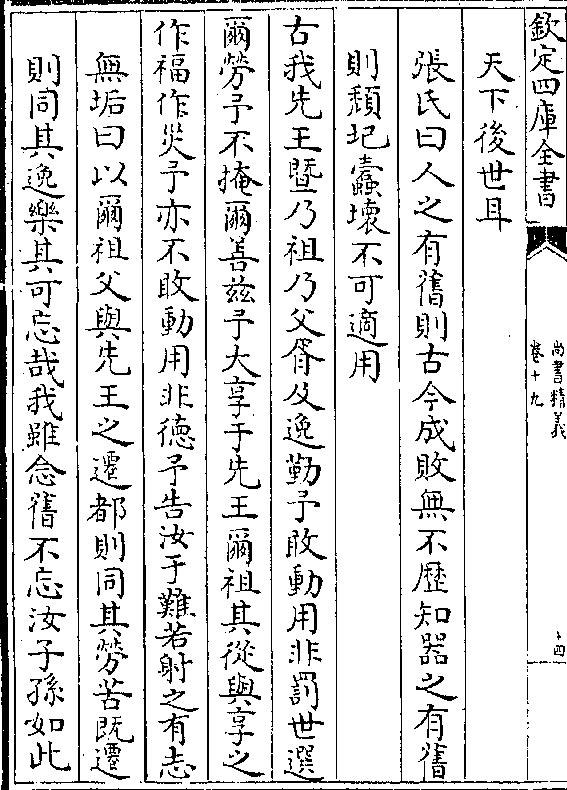 欽定四庫全書
尚書精義
卷十九
十四
天下後世耳
張氏曰人之有舊則古今成敗無不歴知器之有舊
則頽圮蠧壊不可適用
古我先王暨乃祖乃父胥及逸勤予敢動用非罰世選
爾勞予不掩爾善兹予大享于先王爾祖其從與享之
作福作災予亦不敢動用非德予告汝于難若射之有志
無垢曰以爾祖父與先王之遷都則同其勞苦既遷
則同其逸樂其可忘哉我雖念舊不忘汝子孫如此